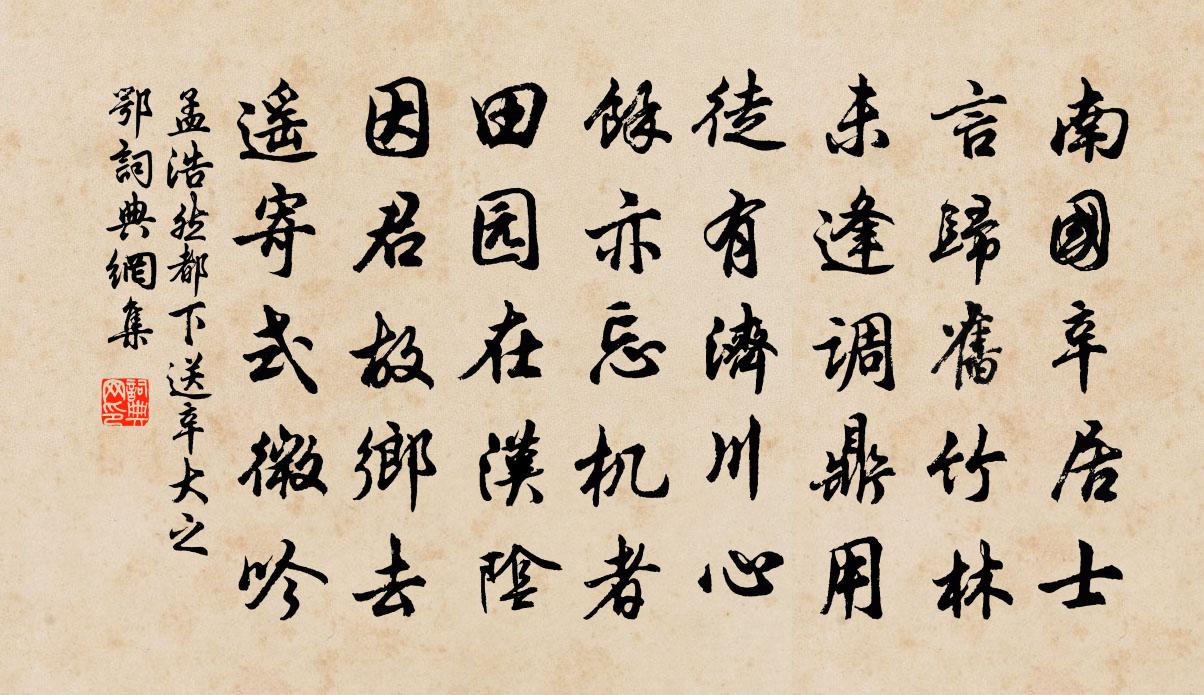 南國辛居士
言歸舊竹林
未逢調鼎用
徒有濟川心
餘亦忘机者
田园在漢陰
因君故鄉去
遥寄式微吟
孟浩然都下送辛大之
鄂詞典網集
詞典网印